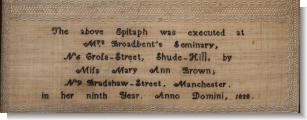 The above Epitaph was executed at
Mrs Broadbent's Seminary,
No 6 Groſs-Street, Shude-Hill, by
Miſs Mary Ann Brown;
No 9 Bradshaw-Street, Manchester.
in her ninth Year. Anno Domini,